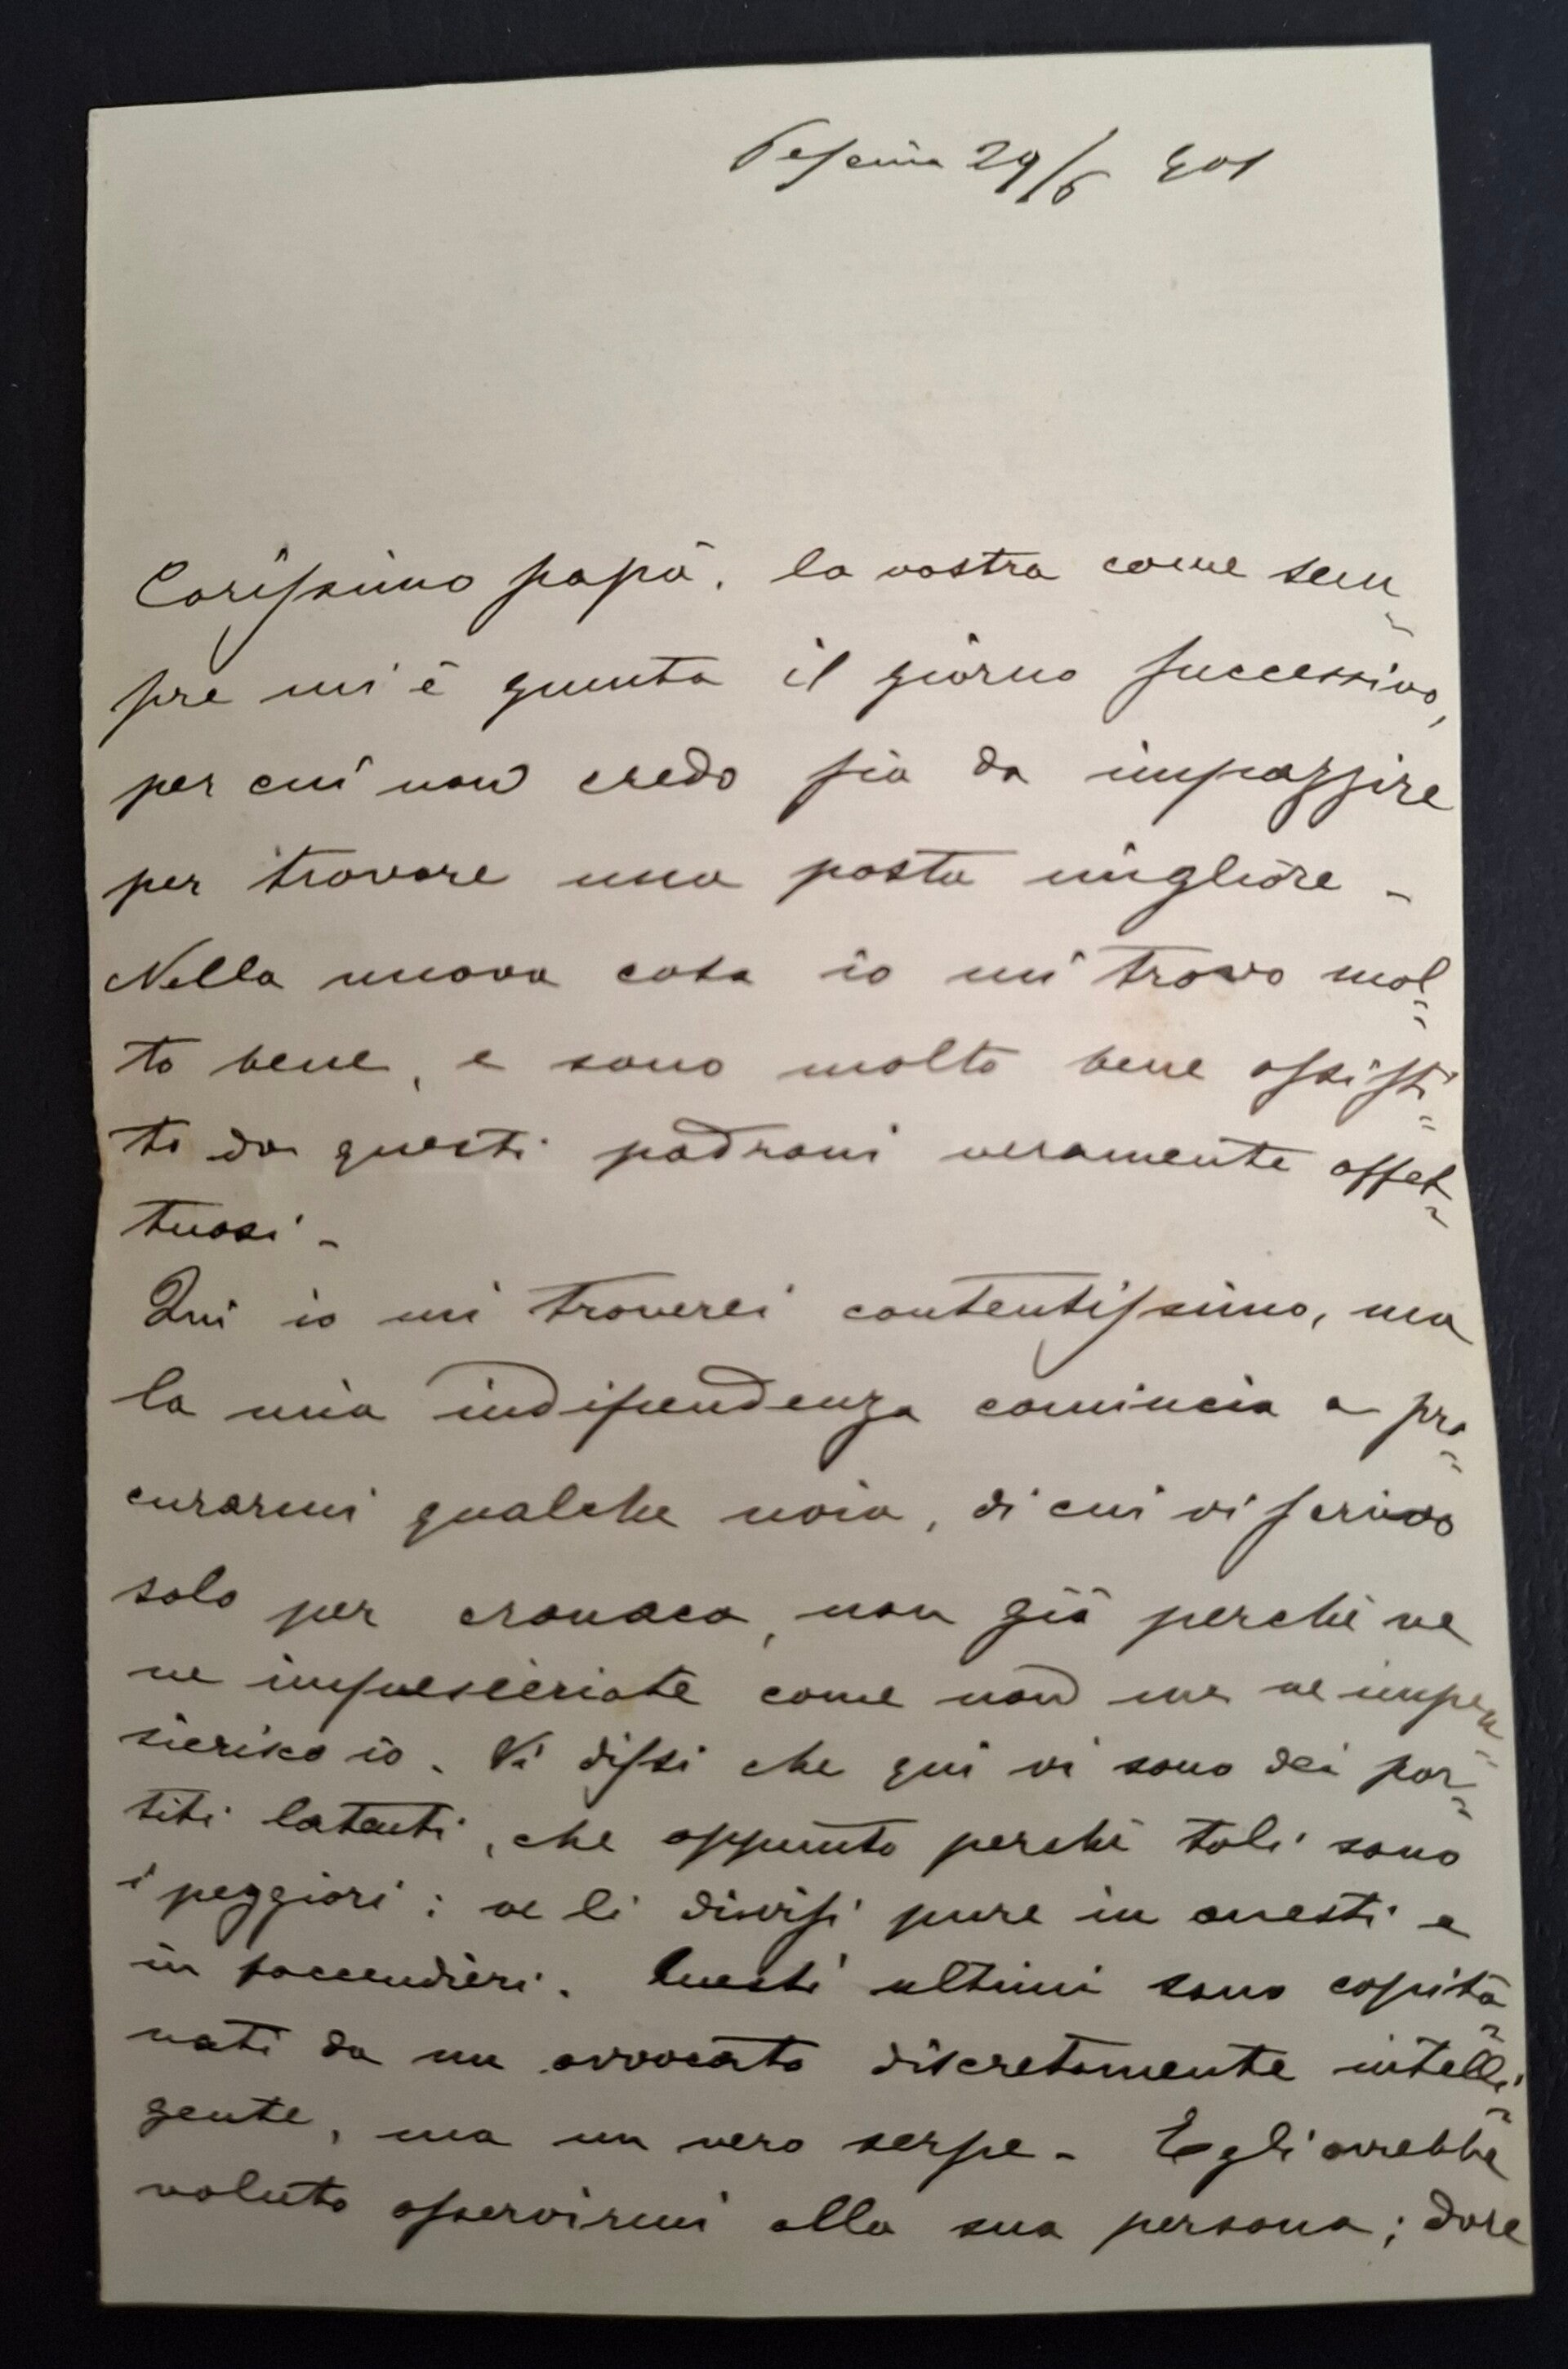 29/6 901
Carissimo papà. la vostra come sem-
pre mi è giunta il giorno successivo,
per cui non credo sia da impazzire
per trovare una posta migliore -
Nella nuova casa io mi trovo mol=
to bene, e sono molto bene assisti=
to da questi padroni veramente affet=
tuosi -
Qui io mi troverei contentissimo, ma
la mia indipendenza comincia a pro=
curarmi qualche noia, di cui vi scrivo
solo per cronaca, non già perchè ve
ne impensieriate come non me ne impen=
sierisco io. Vi dissi che qui vi sono dei par=
titi latenti, che appunto perchè tali sono
i peggiori: ve li divisi pure in onesti e
in faccendieri. Questi ultimi sono capita=
nati da un avvocato discretamente intelli=
gente, ma un vero serpe - Egli avrebbe
voluto asservirmi alla sua persona; dare